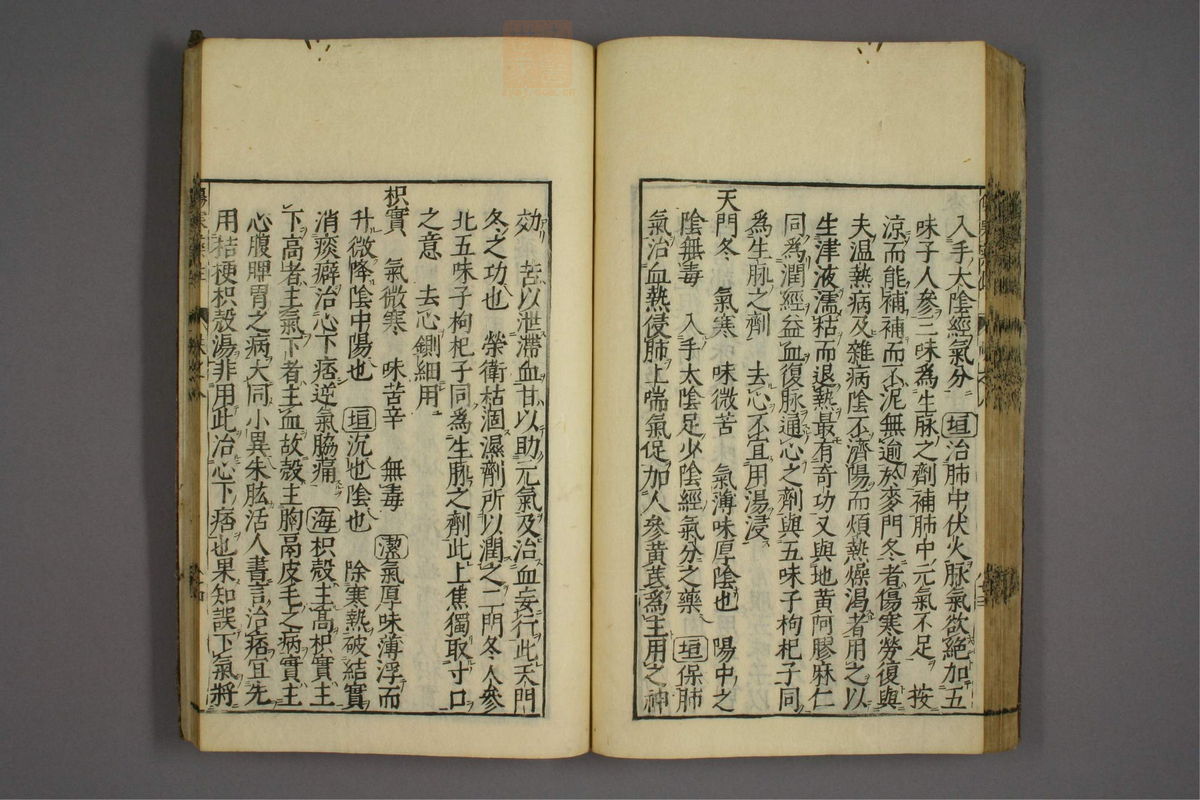 入手太陰經氣分 垣治肺中伏火脉氣欲絶加五
味子人參三味為生脉之劑補肺中元氣不足 按
涼而能補補而不泥無逾於麥門冬者傷寒勞復與
夫温熱病及雜病陰不濟陽而煩熱燥渇者用之以
生津液濡枯而退熱最有奇功又與地黄阿膠麻仁
同為潤經益血復脉通心之劑與五味子枸杞子同
為生脉之劑 去心不宜用湯浸
天門冬 氣寒 味微苦 氣薄味厚陰也 陽中之
陰無毒 入手太陰足少陰經氣分之藥 垣保肺
氣治血熱侵肺上喘氣促加人參黄芪為主用之神
効 苦以泄滯血甘以助元氣及治血妄行此天門
冬之功也 榮衛枯涸濕劑所以潤之二門冬人參
北五味子枸杞子同為生脉之劑此上焦獨取寸口
之意 去心剉細用
枳實 氣微寒 味苦辛 無毒 潔氣厚味薄浮而
升微降陰中陽也 垣沉也陰也 除寒熱破結實
消痰癖治心下痞逆氣脇痛 海枳殻主髙枳實主
下高者主氣下者主血故殻主胸鬲皮毛之病實主
心腹脾胃之病大同小異朱肱活人書言治痞宜先
用桔梗枳殻湯非用此治心下痞也果知誤下氣將